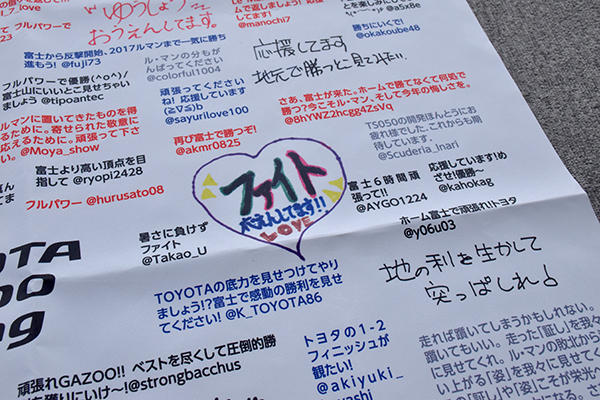 7 love
フルパワー
"ゆうしょう"
おうえんしてます。
てます!
@manochi7
@a5x8e
勝ちにいくで!
@okakoube48
富士から反撃開始、2017ルマンまで一気に勝ち
進もう! @fuji73
ル・マンの分もが
んばってください
@colorful1004
応援してます
地元で勝つに見てみたい
フルパワーで優勝(^o^)/
富士山にいいとこ見せちゃい
ましょう @tipoantec
頑張ってください
ね! 応援しています
(≧∇≦)b
@sayurilove100
さあ、富士が来た。ホームで勝てなくて何処で
勝つ?今こそル・マン、そして今年の悔しさを。
@8hYWZ2hcgg4ZsVq
ルマンに置いてきたものを得
るために。寄せられた敬意に
応えるために。頑張って下さ
い。@Moya_show
再び富士で勝つぞ!
@akmr0825
TS050の開発ほんとうにお
疲れ様でした。これからも期
待しています。
@Scuderia_Inari
富士より高い頂点を目
指して @ryopi2428
フルパワー @hurusato08
ファイト
おえんしてます!!
LOVE
富士6時間頑
張って!!
@AYGO1224
応援しています!め
ざせ!優勝〜
@kahokag
ホーム富士で頑張れ!トヨタ
@y06u03
暑さに負けず
ファイト
@Takao_U
地の利を生かして
突っぱしれよ
TOYOTAの底力を見せつけてやり
ましょう!?富士で感動の勝利を見せ
てください! @K_TOYOTA86
OTA
oo
ng
頑張れGAZOO!! ベストを尽くして圧倒的勝
を獲りにいけ〜!@strongbacchus
トヨタの1-2
フィニッシュが
観たい!
@akiyuki_
走れば躓いてしまうかもしれない。
躓いてもいい。走った「証し」を我々
に見せてくれ。ル・マンの敗北から
い上がる「姿」を我々に見せてく
の「証し」や「姿」こそが栄光へ